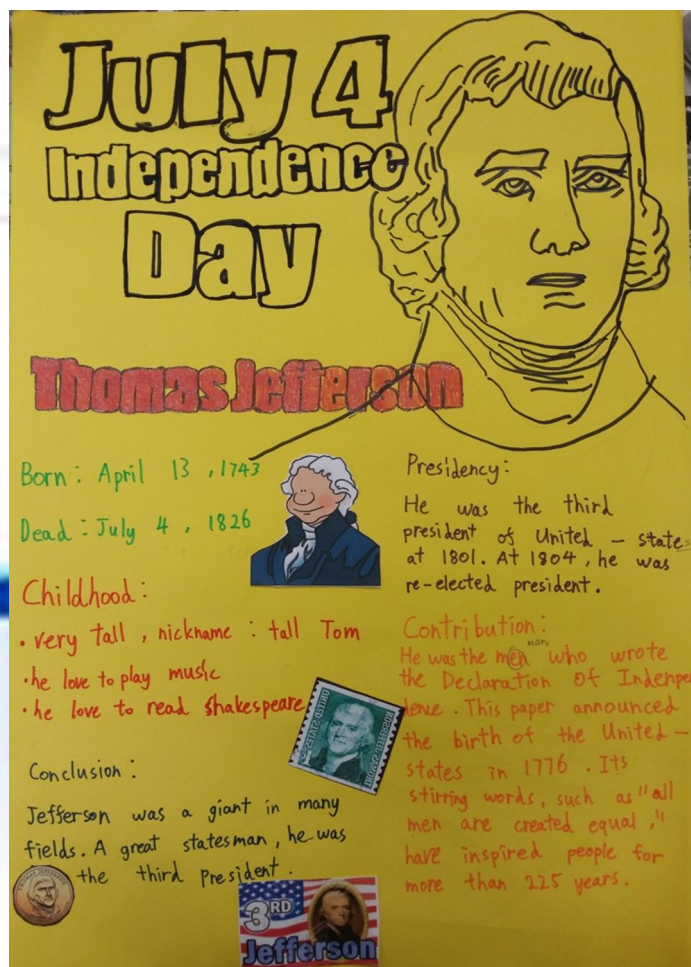 July 4
Independence
Day
Thomas Jefferson
Born : April 13 , 1743
Dead : July 4 , 1826
Childhood :
• very tall , nickname : tall Tom
• he love to play music
• he love to read Shakespeare
Conclusion :
Jefferson was a giant in many
fields. A great statesman, he was
the third president.
THOMAS JEFFERSON
Presidency :
He was the third
president of United - states
at 1801. At 1804, he was
re-elected president.
Contribution :
man
He was the men who wrote
the Declaration of Indenpe
dence . This paper announced
the birth of the United -
states in 1776 . Its
stirring words, such as "all
men are created equal ,"
have inspired people for
more than 225 years.
UNITED STATES
THOMAS JEFFERSON
3RD
Jefferson